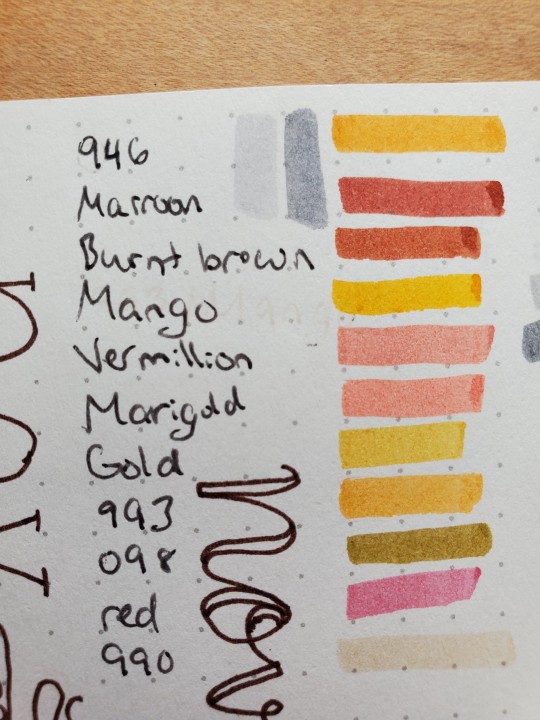 946
Marroon
Burnt brown
Mango
Vermillion
Marigold
Gold
993
098
red
990